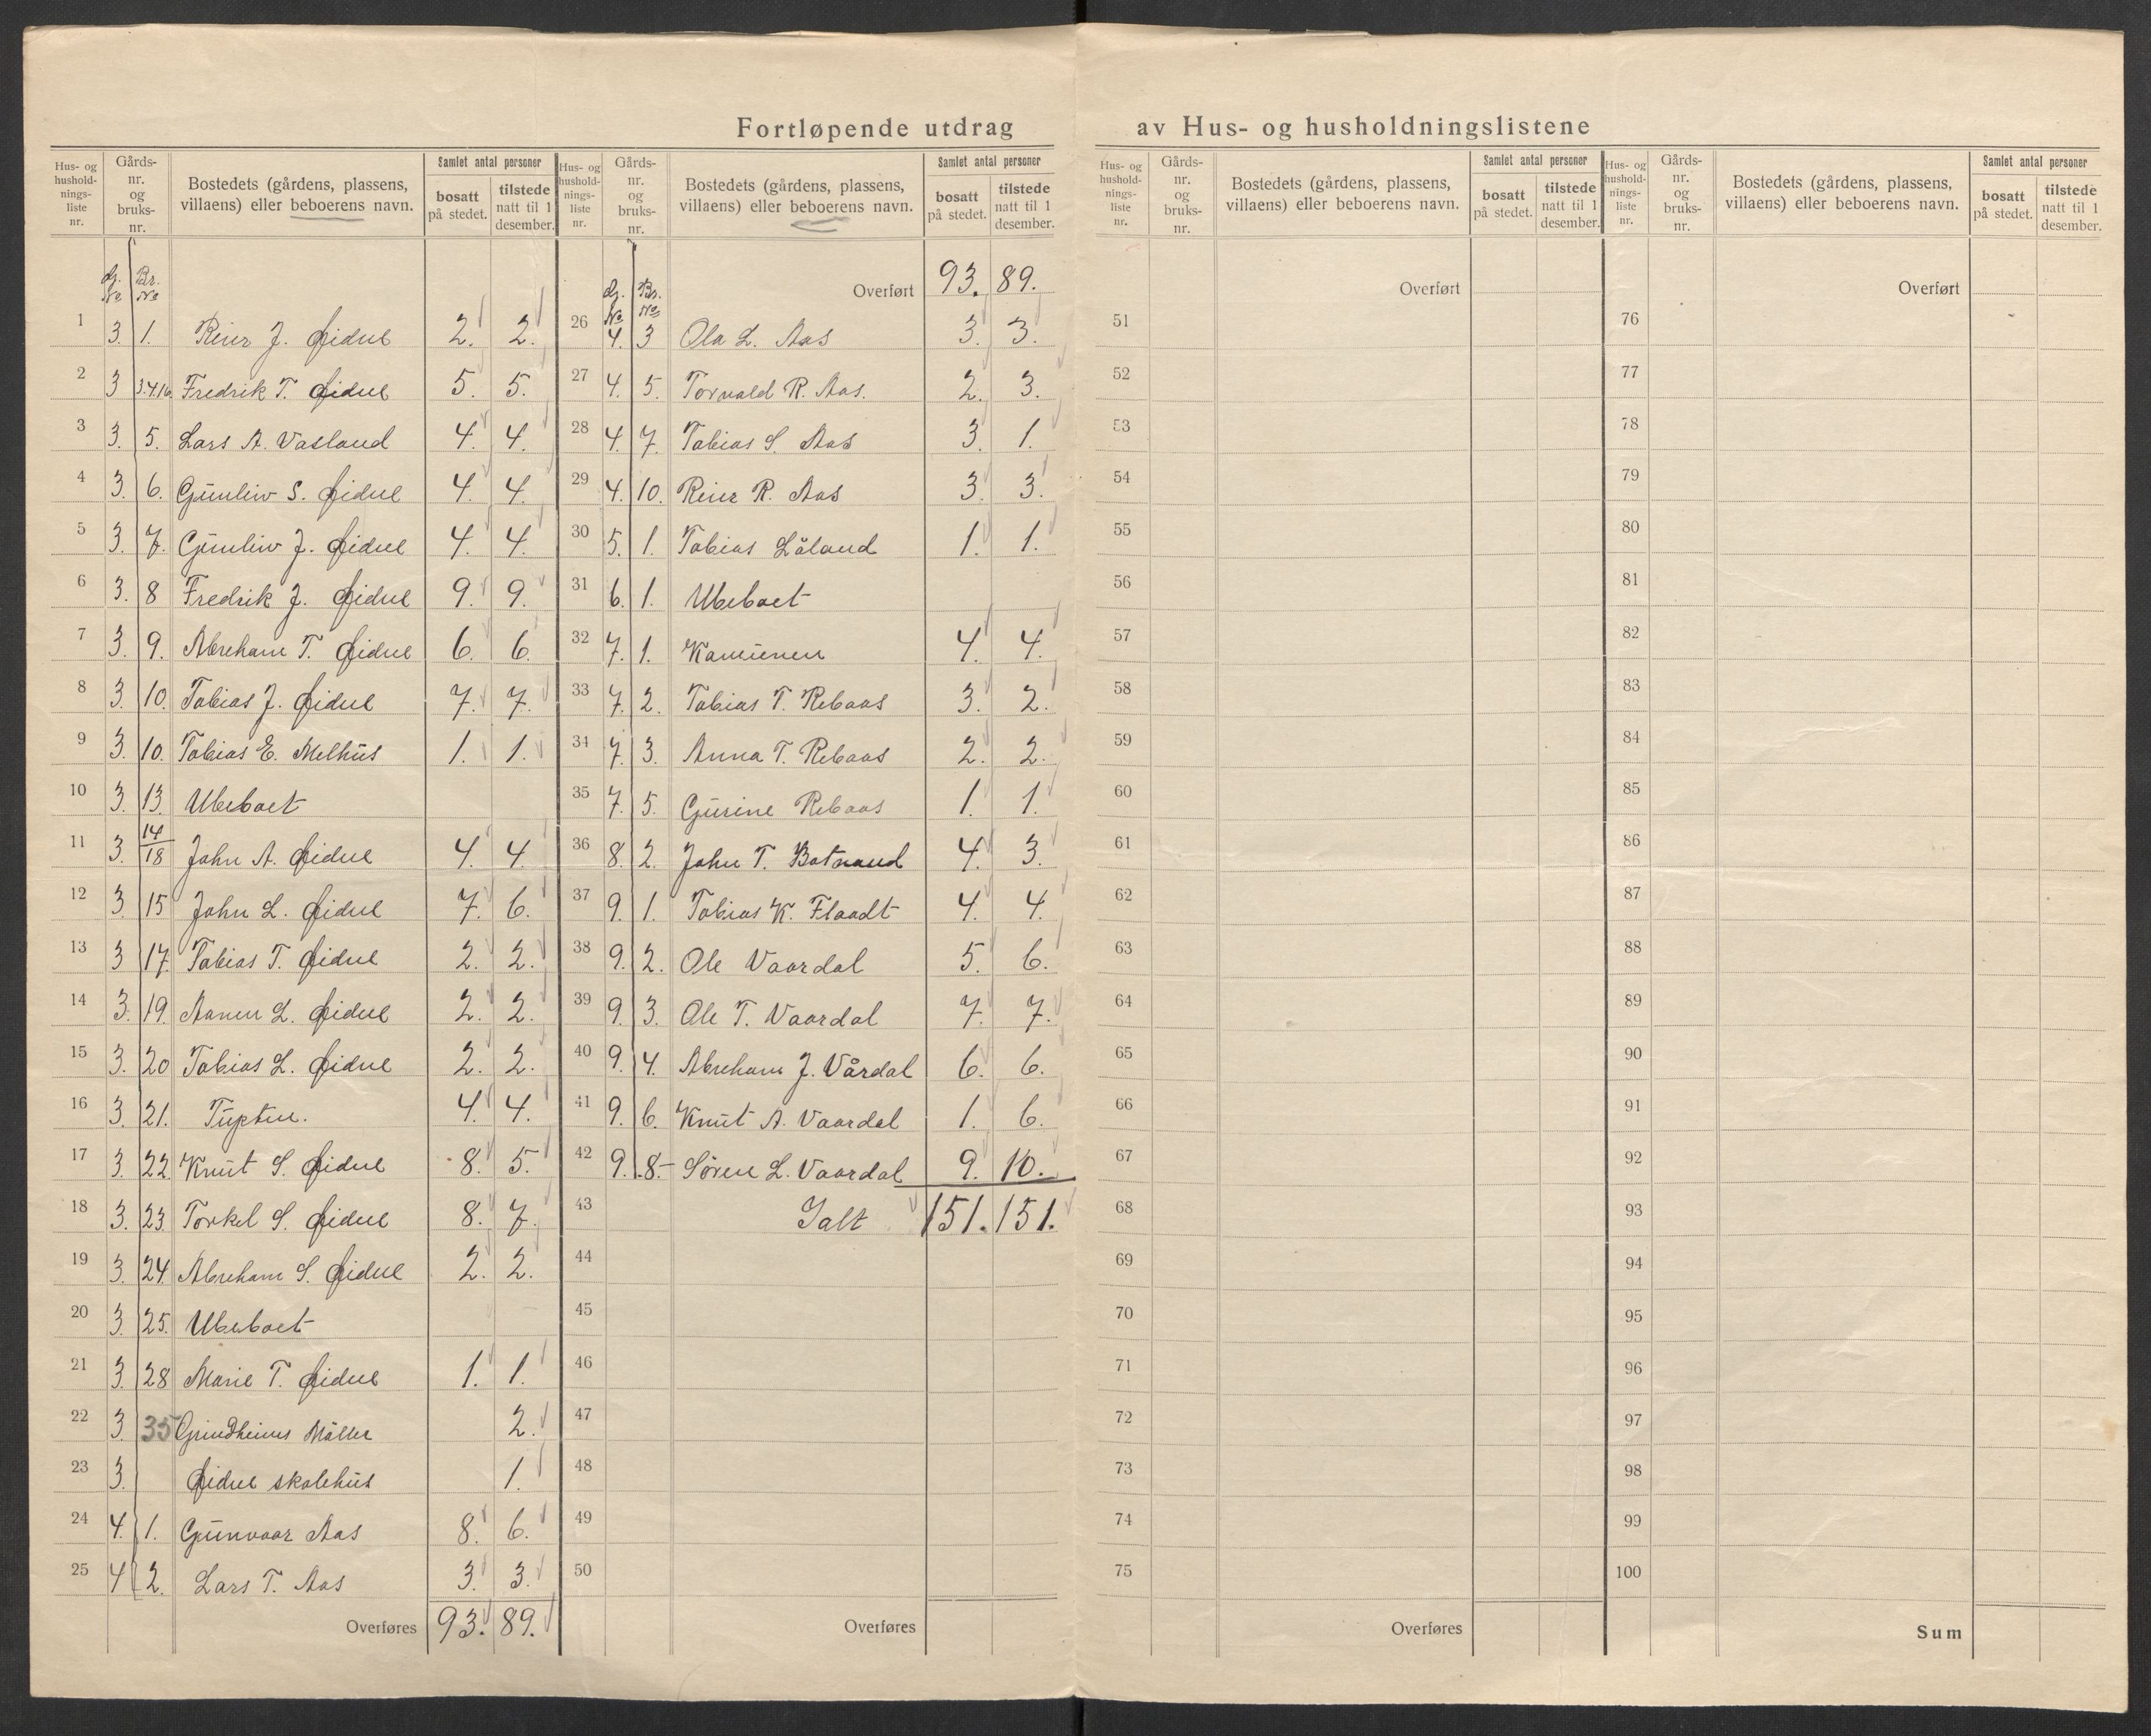 Fortløpende utdrag av Hus- og husholdningslistene
Hus- og husholdnings-liste nr. Gårds-nr. og bruks-nr. Bostedets (gårdens, plassens, villaens) eller beboerens navn. Samlet antal personer bosatt på stedet. tilstede natt til 1 desember.
G. No Br. No
1 3. 1. Reier J. Øidne 2. 2.
2 3 3.4.16. Fredrik T. Øidne 5. 5.
3 3. 5. Lars A. Vasland 4. 4.
4 3. 6. Gunliv S. Øidne 4. 4.
5 3. 7. Gunliv J. Øidne 4. 4.
6 3. 8 Fredrik J. Øidne 9. 9.
7 3. 9. Abreham T. Øidne 6. 6.
8 3. 10. Tobias J. Øidne 7. 7.
9 3. 10. Tobias E. Melhus 1. 1.
10 3. 13. Ubeboet
11 3. 14/18 John A. Øidne 4. 4.
12 3. 15 John L. Øidne 7. 6.
13 3 17. Tobias T. Øidne 2. 2.
14 3. 19. Aanen L. Øidne 2. 2.
15 3. 20 Tobias L. Øidne 2. 2.
16 3. 21. Tupten. 4. 4.
17 3. 22. Knut S. Øidne 8. 5.
18 3. 23. Torkel S. Øidne 8. 7.
19 3. 24. Abreham S. Øidne 2. 2.
20 3. 25. Ubeboet
21 3. 28 Marie T. Øidne 1. 1.
22 3. 35 Grindheims Møller 2.
23 3. Øidne skolehus 1.
24 4. 1. Gunvaar Aas 8. 6.
25 4 2. Lars T. Aas 3. 3.
Overføres 93. 89.
Hus- og husholdnings-liste nr. Gårds-nr. og bruks-nr. Bostedets (gårdens, plassens, villaens) eller beboerens navn. Samlet antal personer bosatt på stedet. tilstede natt til 1 desember.
G. No Br. No
Overført 93. 89.
26 4. 3 Ola L. Aas 3. 3.
27 4. 5. Torvald R. Aas. 2. 3.
28 4. 7. Tobias S. Aas 3. 1.
29 4. 10. Reier R. Aas 3. 3.
30 5. 1. Tobias Låland 1. 1.
31 6. 1. Ubeboet
32 7. 1. 4. 4.
33 7. 2. Tobias T. Rebaas 3. 2.
34 7. 3. Anna T. Rebaas 2. 2.
35 7. 5. Gurine Rebaas 1. 1.
36 8. 2. John T. 4. 3.
37 9. 1. Tobias K. Flaadt 4. 4.
38 9. 2. Ole Vaardal 5. 6.
39 9. 3. Ole T. Vaardal 7. 7.
40 9. 4. Abreham J. Vårdal 6. 6.
41 9. 6. Knut A. Vaardal 1. 6.
42 9. 8- Søren L. Vaardal 9. 10.
43 Ialt 151. 151.
44
45
46
47
48
49
50
Overføres
Hus- og husholdnings-liste nr. Gårds-nr. og bruks-nr. Bostedets (gårdens, plassens, villaens) eller beboerens navn. Samlet antal personer bosatt på stedet. tilstede natt til 1 desember.
Overført
51
52
53
54
55
56
57
58
59
60
61
62
63
64
65
66
67
68
69
70
71
72
73
74
75
Overføres
Hus- og husholdnings-liste nr. Gårds-nr. og bruks-nr. Bostedets (gårdens, plassens, villaens) eller beboerens navn. Samlet antal personer bosatt på stedet. tilstede natt til 1 desember.
Overført
76
77
78
79
80
81
82
83
84
85
86
87
88
89
90
91
92
93
94
95
96
97
98
99
100
Sum